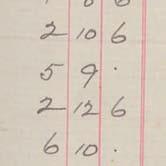 2 10 6
5 9 .
2 12 6
6 10 .